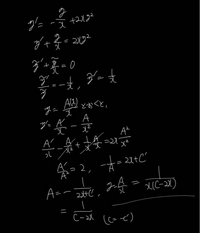 y' = -y/x + 2xy²
y' + y/x = 2xy²
y' + y/x = 0
y'/y = -1/x,
y = A(x)/x
y' = A'/x - A/x²
A'/x - A/x² + 1/x A/x = 2x A²/x²
A'/A² = 2, -1/A = 2x+C'
A = - 1/(2x+C'), y = A/x = 1/(x(C-2x))
= 1/(C-2x) (C=-C')